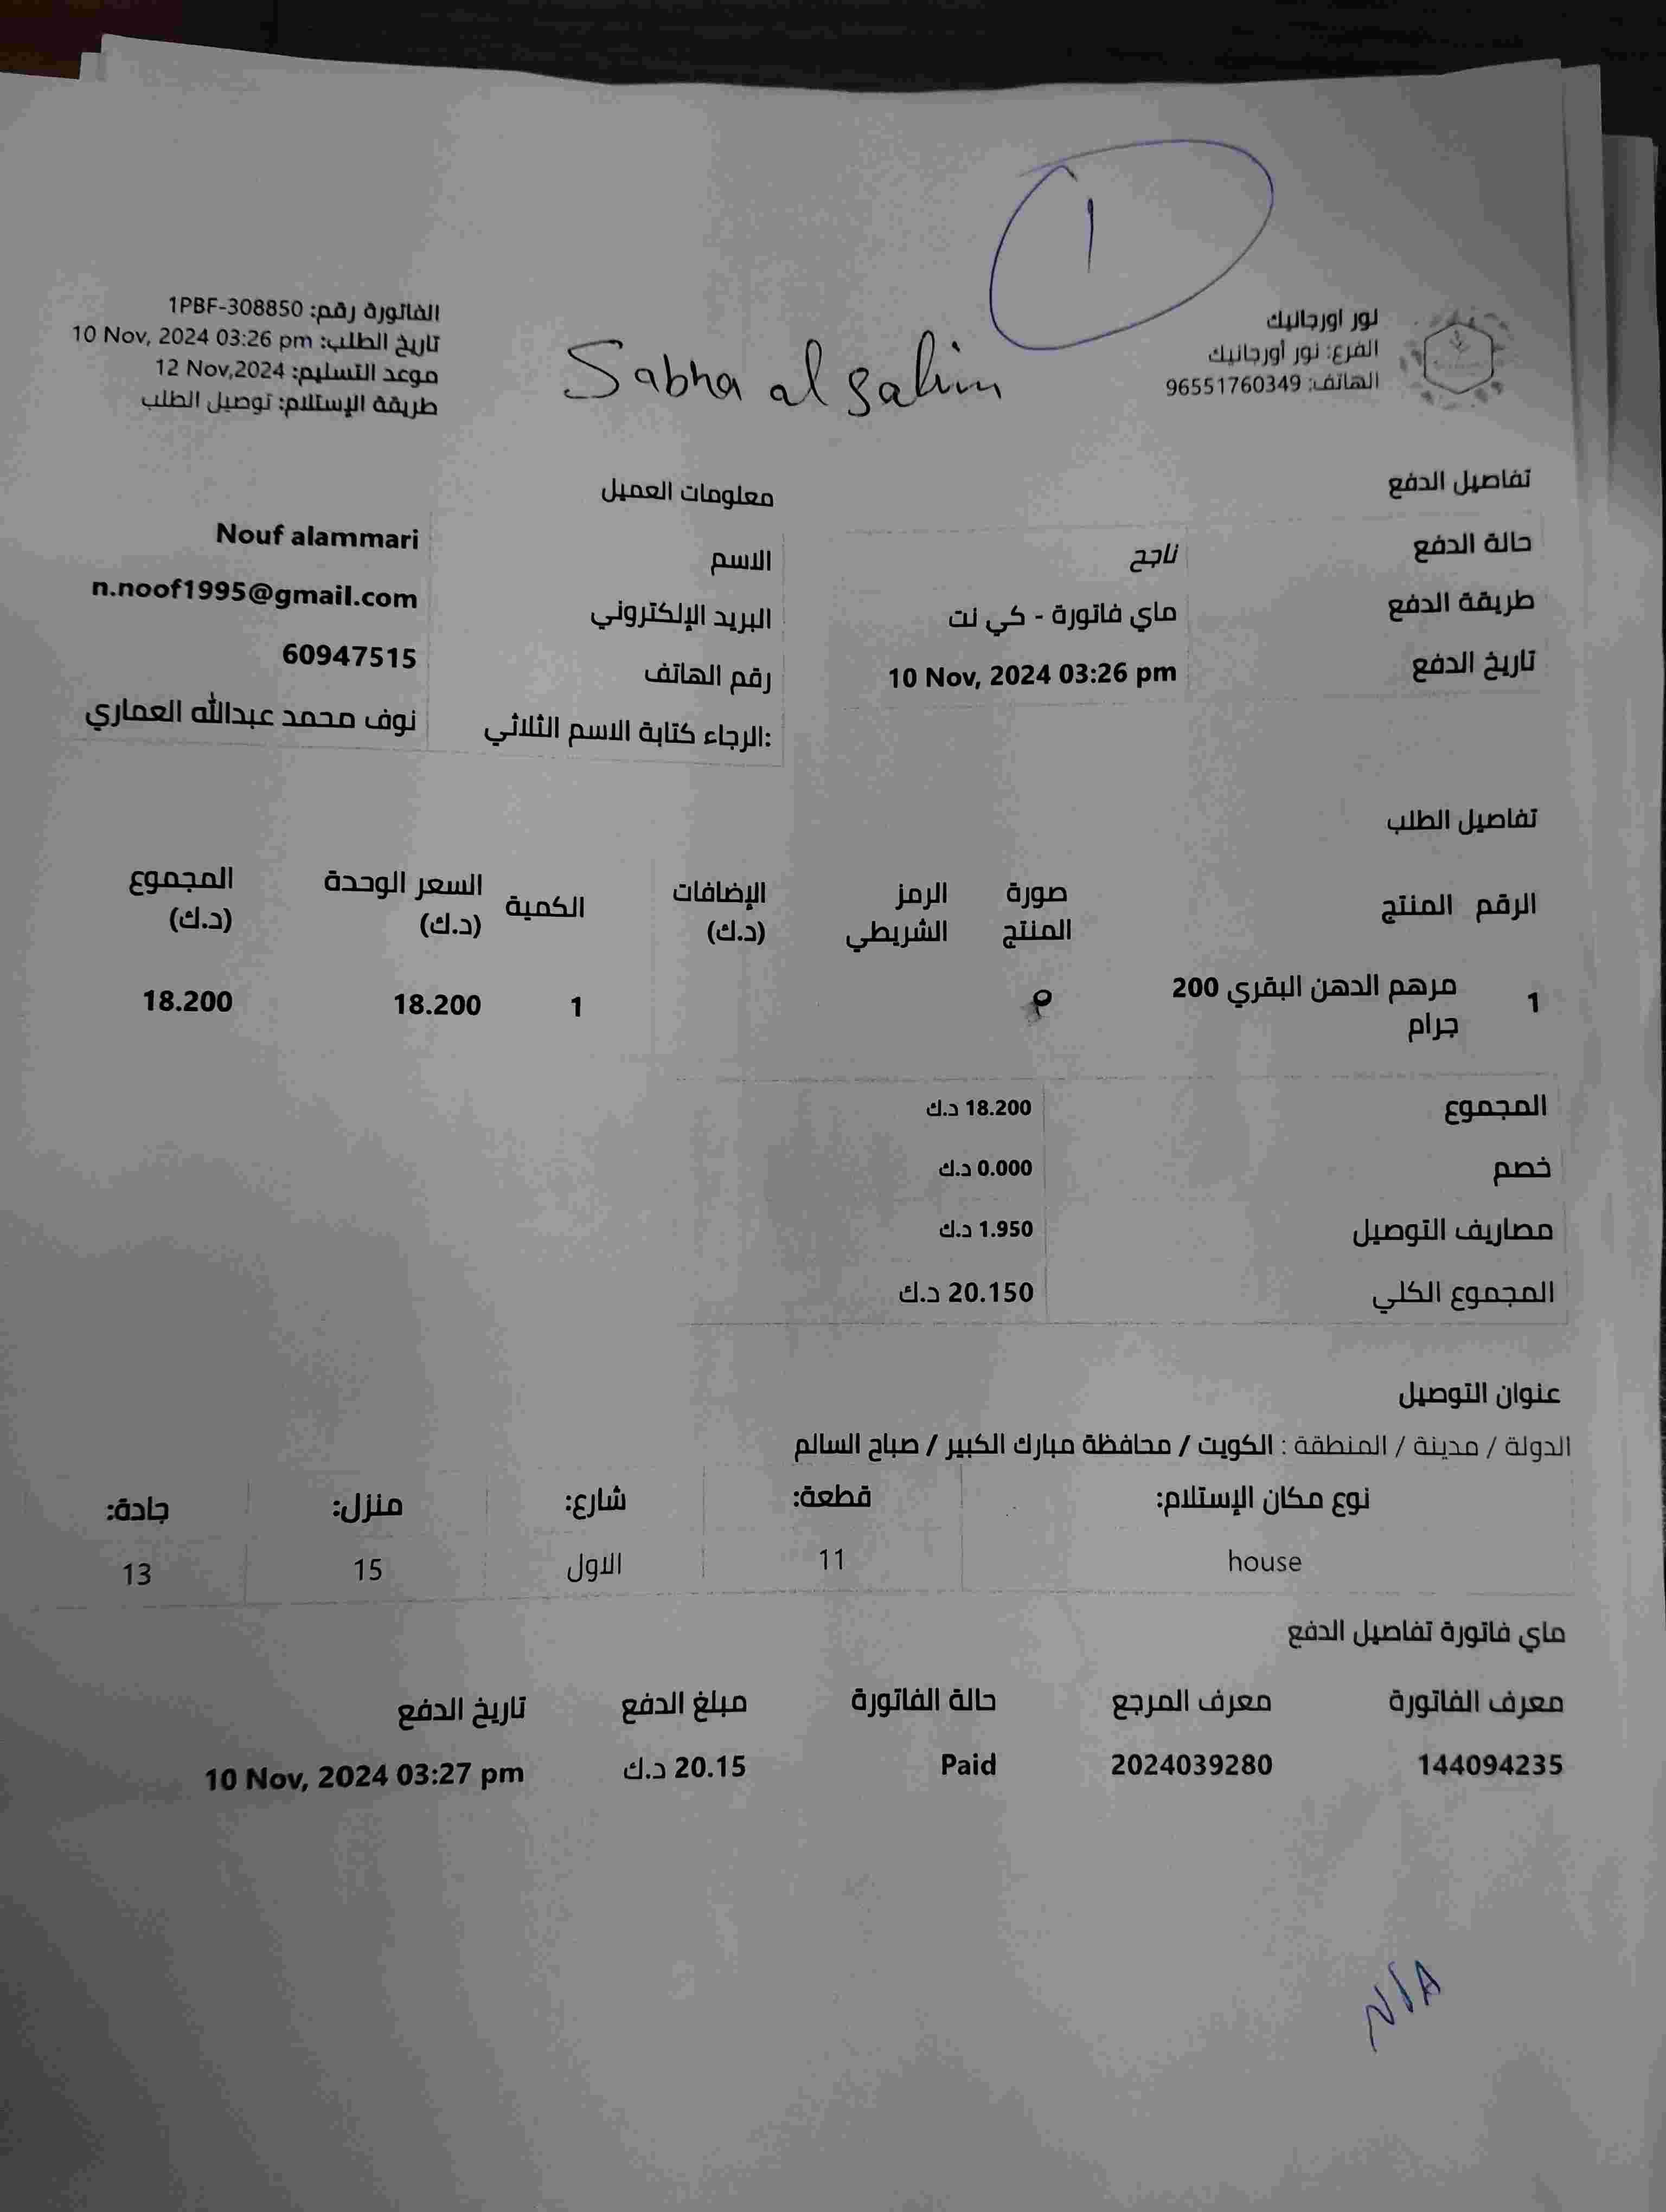 1
نور اورجانيك
الفرع: نور أورجانيك
الهاتف: 96551760349
Sabha al Salim
الفاتورة رقم: 1PBF-308850
تاريخ الطلب: 10 Nov, 2024 03:26 pm
موعد التسليم: 12 Nov,2024
طريقة الإستلام: توصيل الطلب
تفاصيل الدفع
حالة الدفع ناجح
طريقة الدفع ماي فاتورة - كي نت
تاريخ الدفع 10 Nov, 2024 03:26 pm
معلومات العميل
الاسم Nouf alammari
البريد الإلكتروني n.noof1995@gmail.com
رقم الهاتف 60947515
الرجاء كتابة الاسم الثلاثي: نوف محمد عبدالله العماري
تفاصيل الطلب
الرقم المنتج صورة المنتج الرمز الشريطي الإضافات (د.ك) الكمية السعر الوحدة (د.ك) المجموع (د.ك)
1 مرهم الدهن البقري 200 جرام 1 18.200 18.200
المجموع 18.200 د.ك
خصم 0.000 د.ك
مصاريف التوصيل 1.950 د.ك
المجموع الكلي 20.150 د.ك
عنوان التوصيل
الدولة / مدينة / المنطقة : الكويت / محافظة مبارك الكبير / صباح السالم
نوع مكان الإستلام: قطعة: شارع: منزل: جادة:
house 11 الاول 15 13
ماي فاتورة تفاصيل الدفع
معرف الفاتورة معرف المرجع حالة الفاتورة مبلغ الدفع تاريخ الدفع
144094235 2024039280 Paid 20.15 د.ك 10 Nov, 2024 03:27 pm
N/A